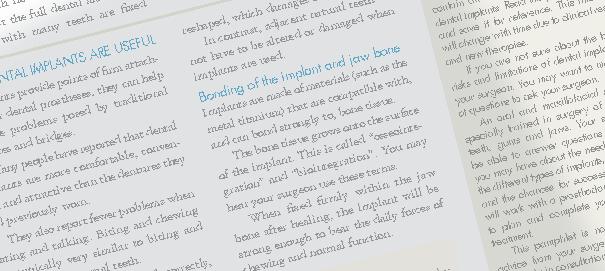 r the full dental
with many teeth are fixed
NTAL IMPLANTS ARE USEFUL
nts provide points of firm attach-
dental prostheses, they can help
e problems posed by traditional
es and bridges.
any people have reported that dental
ants are more comfortable, conven-
and attractive than the dentures they
previously worn.
They also report fewer problems when
ting and talking. Biting and chewing
ically very similar to biting and
al teeth.
rrectly,
reshaped, which damages
In contrast, adjacent natural teeth
not have to be altered or damaged when
implants are used.
Bonding of the implant and jaw bone
Implants are made of materials (such as the
metal titanium) that are compatible with,
and can bond strongly to, bone tissue.
The bone tissue grows onto the surface
of the implant. This is called "osseointe-
gration" and "biointegration". You may
hear your surgeon use these terms.
When fixed firmly within the jaw
bone after healing, the implant will be
strong enough to bear the daily forces of
chewing and normal function.
contain
dental implants. Read
and save it for reference. This
will change with time due to clinical re
and new therapies.
If you are not sure about the b
risks and limitations of dental impla
your surgeon. You may want to
of questions to ask your surgeon.
An oral and maxillofacial s
specially trained in surgery of
teeth, gums and jaws. Your s
be able to answer questions
you may have about the need
the different types of implants
and the chances for success
will work with a prosthodo
to plan and complete yo
treatment.
This pamphlet is no
advice from your surgeo
n consultation